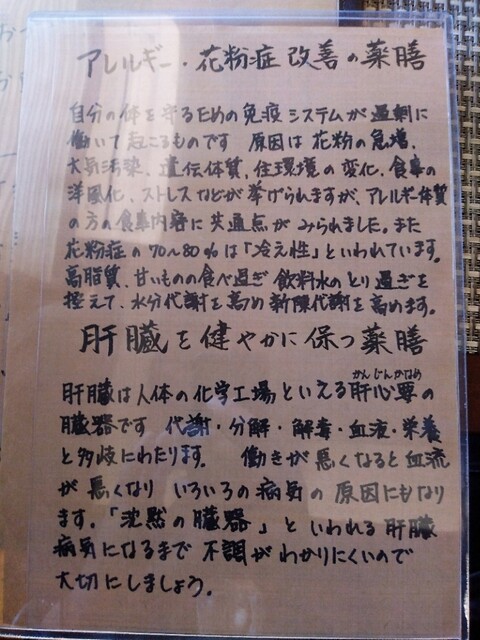 アレルギー・花粉症改善の薬膳
自分の体を守るための免疫システムが過剰に
働いて起こるものです 原因は花粉の急増、
大気汚染、遺伝体質、住環境の変化、食事の
洋風化、ストレスなどが挙げられますが、アレルギー体質
の方の食事内容に共通点がみられました。また
花粉症の70〜80%は「冷え性」といわれています。
高脂質、甘いものの食べ過ぎ 飲料水のとり過ぎを
控えて、水分代謝を高め新陳代謝を高めます。
肝臓を健やかに保つ薬膳
かんじんかなめ
肝臓は人体の化学工場といえる肝心要の
臓器です 代謝・分解・解毒・血液・栄養
と多岐にわたります。 働きが悪くなると血流
が悪くなり いろいろの病気の原因にもなり
ます。「沈黙の臓器」といわれる肝臓
病気になるまで不調がわかりにくいので
大切にしましょう。